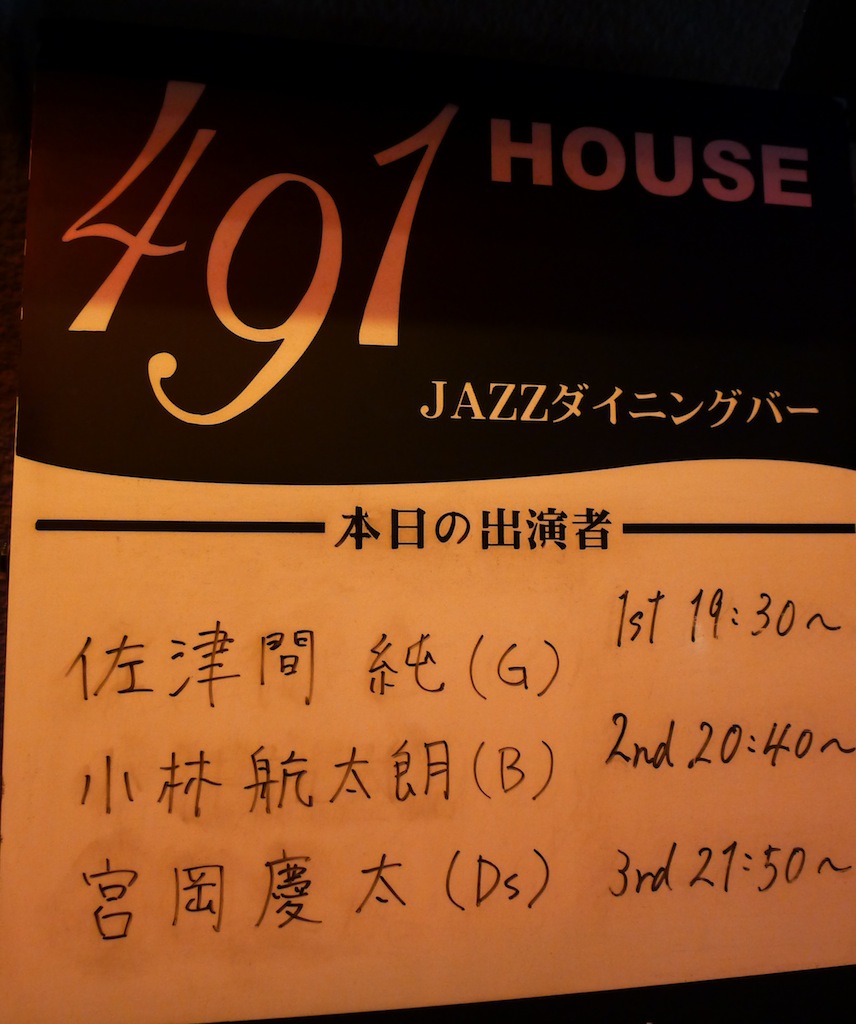 491 HOUSE
JAZZダイニングバー
本日の出演者
佐津間 純(G)
1st 19:30~
小林航太朗(B)
2nd 20:40~
宮岡慶太(Ds)
3rd 21:50~